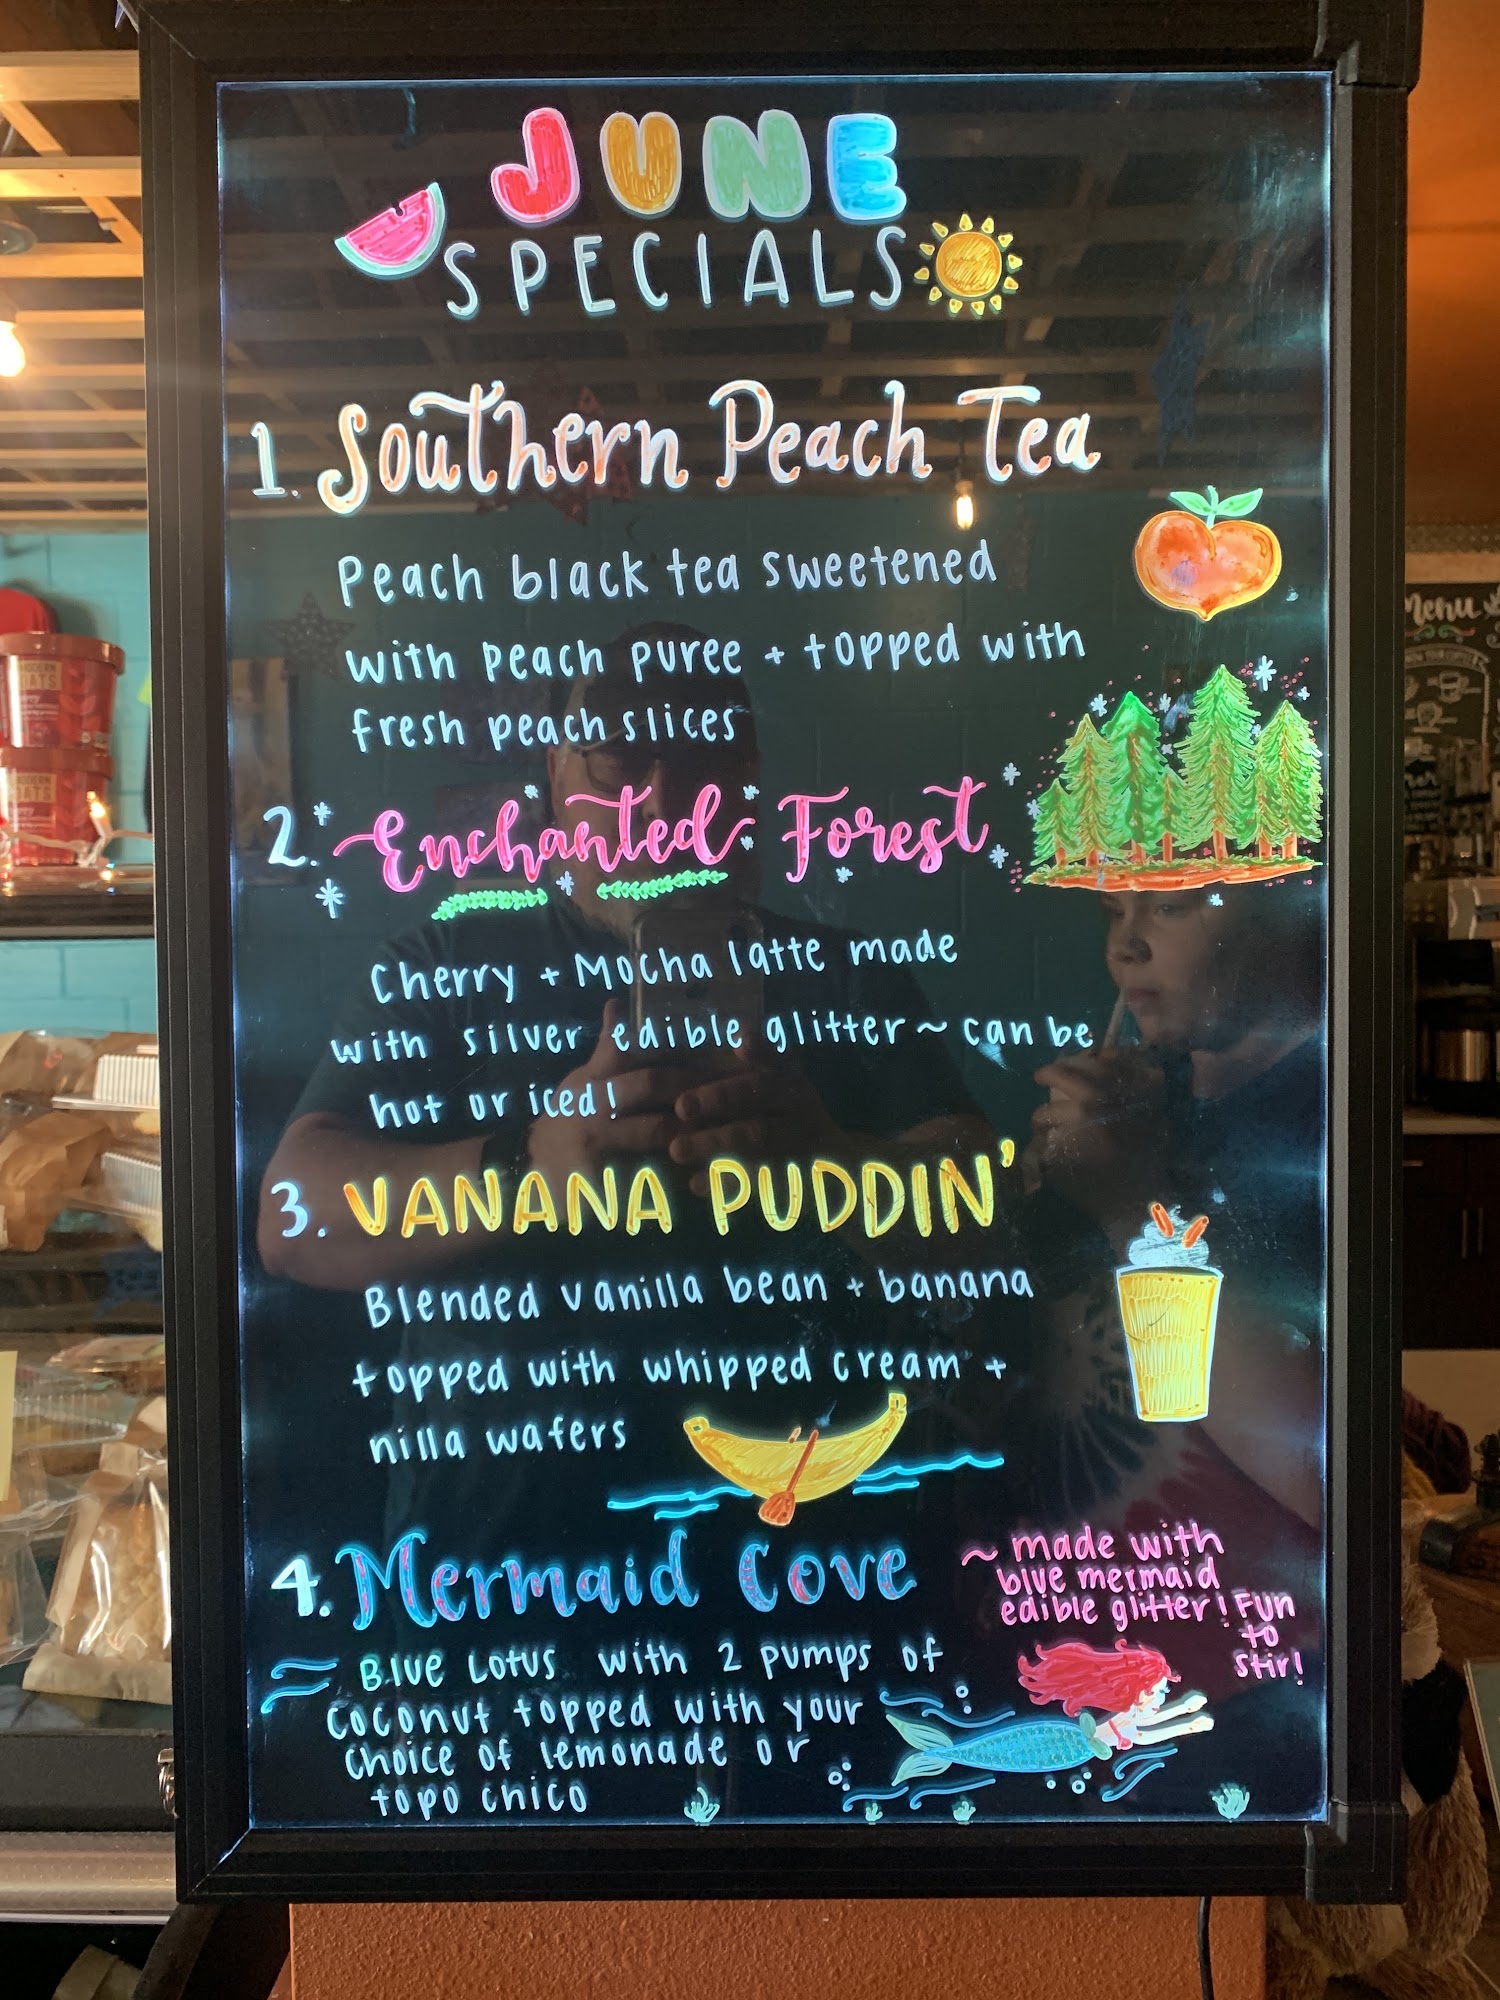 JUNE
SPECIALS
1. Southern Peach Tea
Peach black tea sweetened
with peach puree + topped with
fresh peach slices
2. Enchanted Forest
Cherry + Mocha latte made
with silver edible glitter ~ can be
hot or iced!
3. VANANA PUDDIN'
Blended vanilla bean + banana
topped with whipped cream +
nilla wafers
4. Mermaid Cove
~ made with
blue mermaid
edible glitter! Fun
to
stir!
Blue Lotus with 2 pumps of
Coconut topped with your
choice of lemonade or
topo chico
Menu